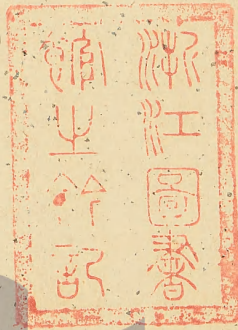 浙江圖書
館之記